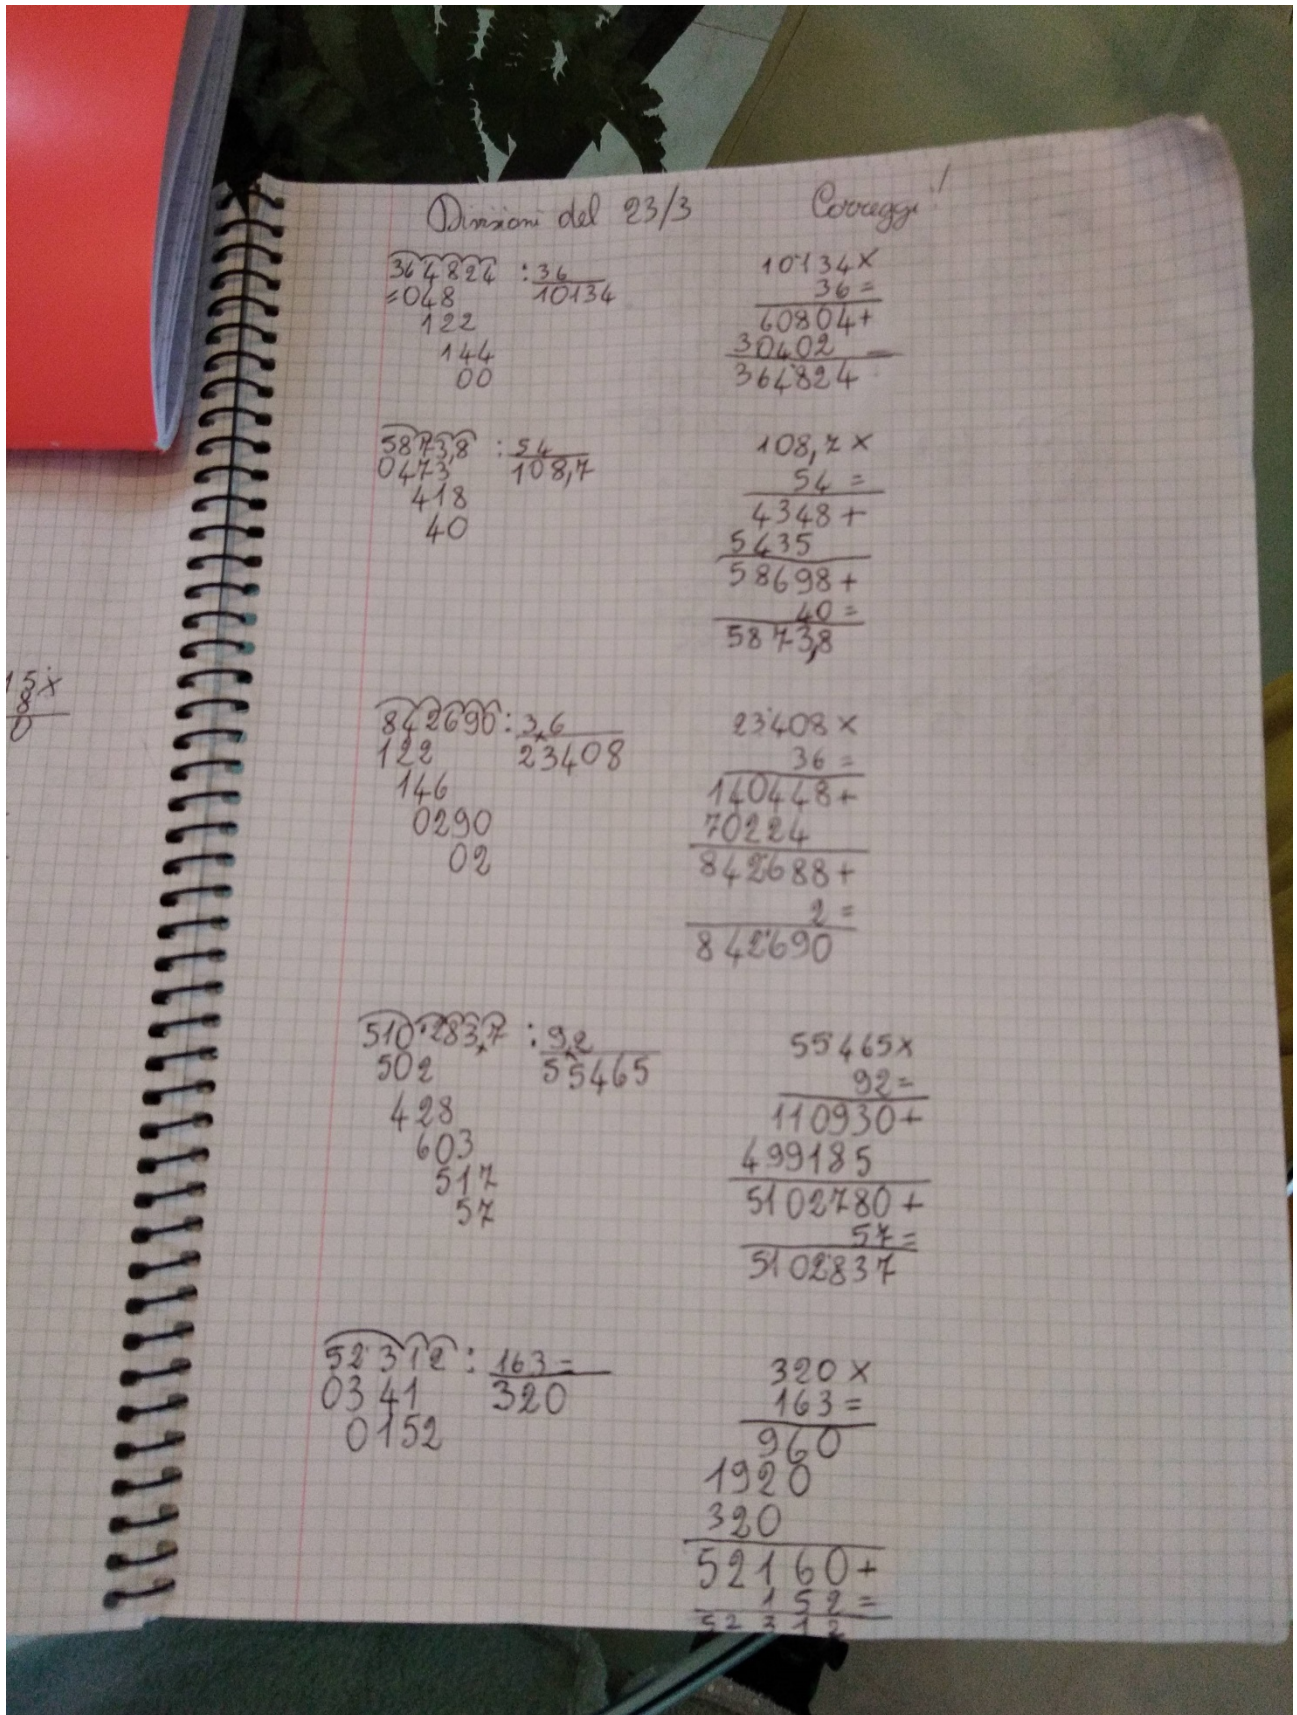 Divisioni del 23/3
Correggi!
364824 : 36
=048 10134
122
144
00
10134 x
36 =
60804 +
30402 –
364824
5873,8 : 54
0473 108,7
418
40
108,7 x
54 =
4348 +
5435
58698 +
40 =
5873,8
842690 : 3,6
122 23408
146
0290
02
23408 x
36 =
140448 +
70224
842688 +
2 =
842690
510·283,7 : 9,2
502 55465
428
603
517
57
55465 x
92 =
110930 +
499185
5102780 +
57 =
5102837
52312 : 163 =
0341 320
0152
320 x
163 =
960
1920
320
52160 +
152 =
52312
15 x
8
0